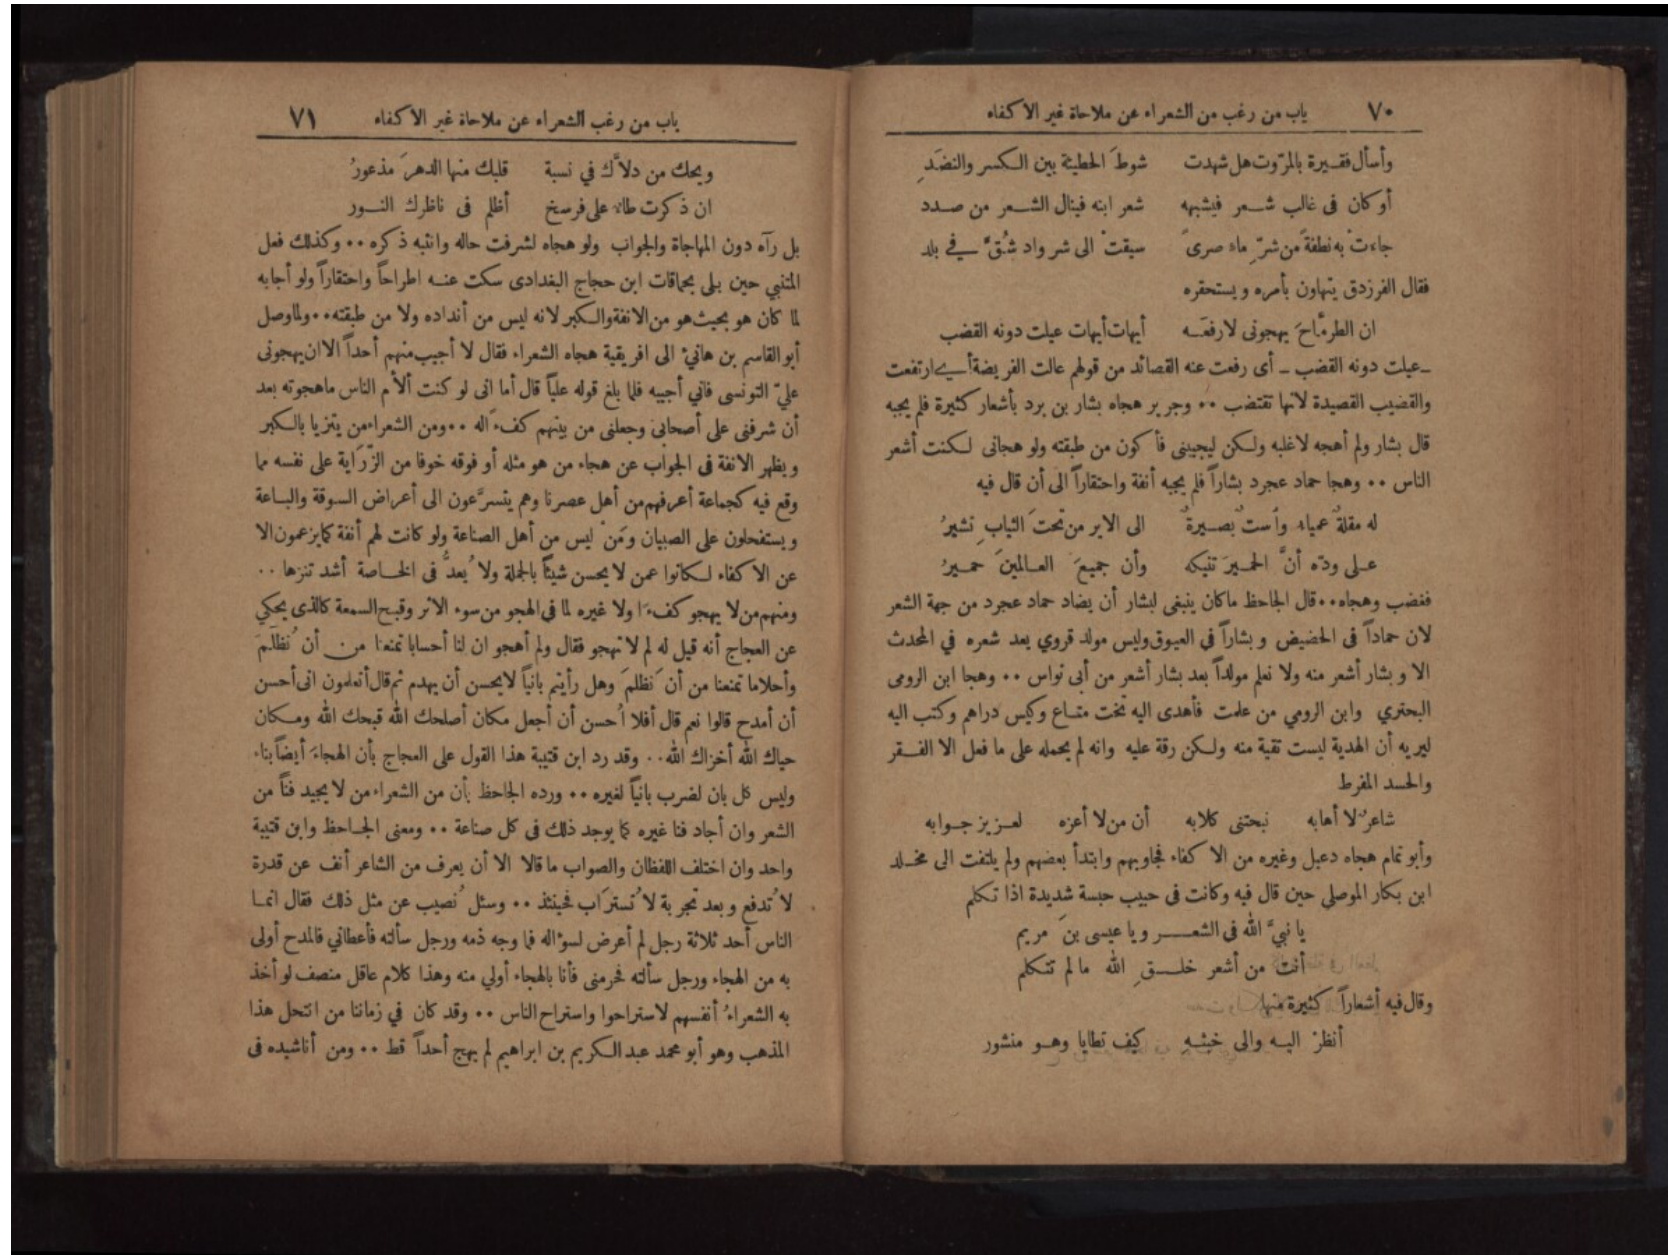 ٧٠ باب من رغب من الشعراء عن ملاحاة غير الاكفاء
وأسأل فقـيرة بالمرّوت هل شهدت شوطَ الحطيئة بين الكسر والنضَدِ
أو كان فى غالب شـعر فيشبهه شعر ابنه فينال الشعر من صدد
جاءتْ به نطفةً من شرّ ماءٍ صرىً سيقتْ الى شر واد شُقَّ في بلد
فقال الفرزدق يتهاون بأمره ويستحقره
ان الطرمَّاحَ يهجونى لارفعَـه أيهات أيهات عيلت دونه القضب
ـ عيلت دونه القضب ـ أى رفعت عنه القصائد من قولهم عالت الفريضة أي ارتفعت
والقضيب القصيدة لانها تقتضب ٠٠ وجرير هجاه بشار بن برد بأشعار كثيرة فلم يجبه
قال بشار ولم أهجه لاغلبه ولكن ليجيبنى فأكون من طبقته ولو هجانى لكنت أشعر
الناس ٠٠ وهجا حماد عجرد بشاراً فلم يجبه أنفة واحتقاراً الى أن قال فيه
له مقلةٌ عمياء واستٌ بصيرةٌ الى الاير من تحتَ الثيابِ تشيرُ
على ودّه أنَّ الحميرَ تنيكه وأن جميعَ العالمينَ حميرُ
فغضب وهجاه ٠٠ قال الجاحظ ما كان ينبغى لبشار أن يضاد حماد عجرد من جهة الشعر
لان حماداً فى الحضيض وبشاراً في العيوق وليس مولد قروي يعد شعره في المحدث
الا وبشار أشعر منه ولا نعلم مولداً بعد بشار أشعر من أبى نواس ٠٠ وهجا ابن الرومى
البحتري وابن الرومي من علمت فأهدى اليه تخت متاع وكيس دراهم وكتب اليه
ليريه أن الهدية ليست تقية منه ولكن رقة عليه وانه لم يحمله على ما فعل الا الفقر
والحسد المفرط
شاعرٌ لا أهابه نبحتنى كلابه أن من لا أعزه لعزيز جوابه
وأبو تمام هجاه دعبل وغيره من الاكفاء فجاوبهم وابتدأ بعضهم ولم يلتفت الى مخلد
ابن بكار الموصلي حين قال فيه وكانت فى حبيب حبسة شديدة اذا تكلم
يا نبيَّ الله فى الشعـر ويا عيسى بنَ مريم
أنت من أشعر خلـقِ الله مالم تتكلم
وقال فيه أشعاراً كثيرة منها
أنظرْ اليه والى خبثهِ كيف تطايا وهو منشور
باب من رغب الشعراء عن ملاحاة غير الاكفاء ٧١
ويحك من دلاَّك في نسبة قلبك منها الدهرَ مذعورُ
ان ذكرت طاءٌ على فرسخ أظلم فى ناظرك النور
بل رآه دون المهاجاة والجواب ولو هجاه لشرفت حاله وانتبه ذكره ٠٠ وكذلك فعل
المتنبي حين بلى بحماقات ابن حجاج البغدادى سكت عنه اطراحاً واحتقاراً ولو أجابه
لما كان هو بحيث هو من الانفة والكبر لانه ليس من أنداده ولا من طبقته ٠٠ ولما وصل
أبو القاسم بن هانئ الى افريقية هجاه الشعراء فقال لا أجيب منهم أحداً الا ان يهجونى
عليّ التونسى فاني أجيبه فلما بلغ قوله علياً قال أما انى لو كنت ألأم الناس ما هجوته بعد
أن شرفنى على أصحابى وجعلنى من بينهم كفءاً له ٠٠ ومن الشعراء من يتزيا بالكبر
ويظهر الانفة فى الجواب عن هجاء من هو مثله أو فوقه خوفا من الزّراية على نفسه مما
وقع فيه كجماعة أعرفهم من أهل عصرنا وهم يتسرَّعون الى أعراض السوقة والباعة
ويستفحلون على الصبيان ومَنْ ليس من أهل الصناعة ولو كانت لهم أنفة كما يزعمون الا
عن الاكفاء لكانوا عمن لا يحسن شيئاً بالجملة ولا يُعدُّ فى الخاصة أشد تنزها ٠٠
ومنهم من لا يهجو كفءًا ولا غيره لما فى الهجو من سوء الاثر وقبح السمعة كالذى يحكي
عن العجاج أنه قيل له لم لا تهجو فقال ولم أهجو ان لنا أحسابا تمنعنا من أن نُظلَمَ
وأحلاما تمنعنا من أن نَظلمَ وهل رأيتم بانياً لا يحسن أن يهدم ثم قال أتعلمون انى أحسن
أن أمدح قالوا نعم قال أفلا أُحسن أن أجعل مكان أصلحك الله قبحك الله ومكان
حياك الله أخزاك الله ٠٠ وقد رد ابن قتيبة هذا القول على العجاج بأن الهجاءَ أيضاً بناء
وليس كل بان لضرب بانياً لغيره ٠٠ ورده الجاحظ بأن من الشعراء من لا يجيد فناً من
الشعر وان أجاد فنا غيره كما يوجد ذلك فى كل صناعة ٠٠ ومعنى الجاحظ وابن قتيبة
واحد وان اختلف اللفظان والصواب ما قالا الا أن يعرف من الشاعر أنف عن قدرة
لا تُدفع وبعد تجربة لا تُسترَاب فحينئذ ٠٠ وسئل نُصيب عن مثل ذلك فقال انما
الناس أحد ثلاثة رجل لم أعرض لسؤاله فما وجه ذمه ورجل سألته فأعطاني فالمدح أولى
به من الهجاء ورجل سألته فحرمنى فأنا بالهجاء أولي منه وهذا كلام عاقل منصف لو أخذ
به الشعراءُ أنفسهم لاستراحوا واستراح الناس ٠٠ وقد كان في زماننا من انتحل هذا
المذهب وهو أبو محمد عبد الكريم بن ابراهيم لم يهج أحداً قط ٠٠ ومن أناشيده فى